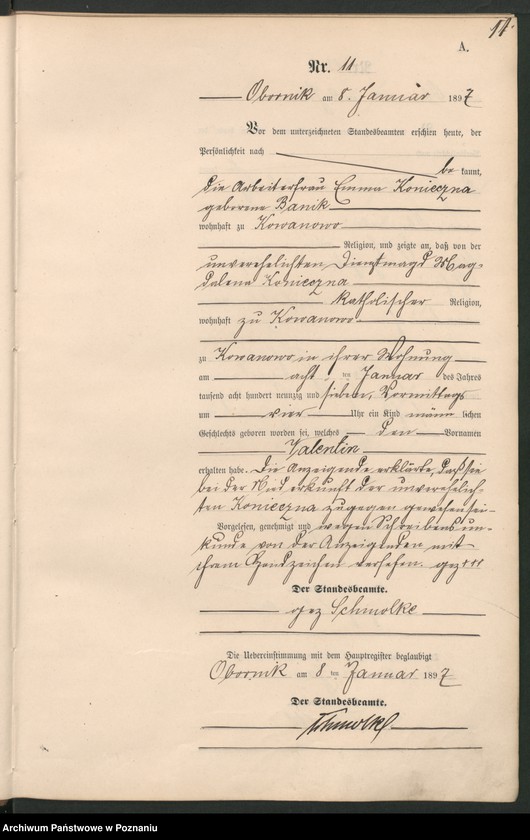 11.
A.
Nr. 11
Obornik am 8. Januar 1897
Vor dem unterzeichneten Standesbeamten erschien heute, der
Persönlichkeit nach
be kannt,
die Arbeiterfrau Emma Konieczna
geborene Banik
wohnhaft zu Kowanowo
Religion, und zeigte an, daß von der
unverehelichten Dienstmagd Mag-
dalena Konieczna
katholischer Religion,
wohnhaft zu Kowanowo
zu Kowanowo in ihrer Wohnung
am acht ten Januar des Jahres
tausend acht hundert neunzig und sieben, Vormittags
um vier Uhr ein Kind männ lichen
Geschlechts geboren worden sei, welches den Vornamen
Valentin
erhalten habe. Die Anzeigende erklärte, daß sie
bei der Niederkunft der unverehelich-
ten Konieczna zugegen gewesen sei
Vorgelesen, genehmigt und wegen Schreibensun-
kunde von der Anzeigenden mit
ihrem Handzeichen versehen. gez +++
Der Standesbeamte.
gez Schmolke
Die Uebereinstimmung mit dem Hauptregister beglaubigt
Obornik am 8 ten Januar 1897
Der Standesbeamte.
Schmolke
Archiwum Państwowe w Poznaniu